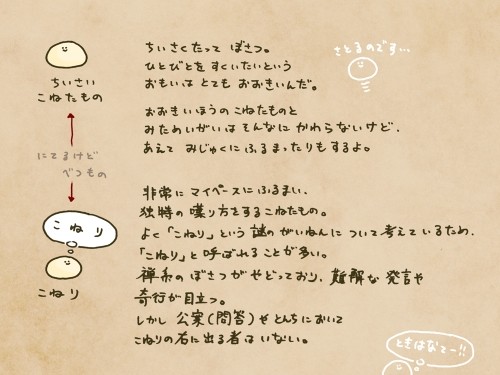 ちいさくたって ぼさつ。
ひとびとを すくいたいという
おもいは とても おおきいんだ。
さとるのです…
ちいさい
こねたもの
おおきいほうの こねたものと
みためいがいは そんなに かわらないけど、
あえて みじゅくに ふるまったりもするよ。
にてるけど
べつもの
非常に マイペースに ふるまい、
独特の 喋り方をする こねたもの。
よく「こねり」という 謎の がいねんに ついて 考えているため、
「こねり」と 呼ばれることが 多い。
禅系の ぼさつが やどっており、難解な 発言や
奇行が 目立つ。
しかし 公案(問答)や とんちにおいて
こねりの 右に 出る 者は いない。
こねり
こねり
ときはなてー!!